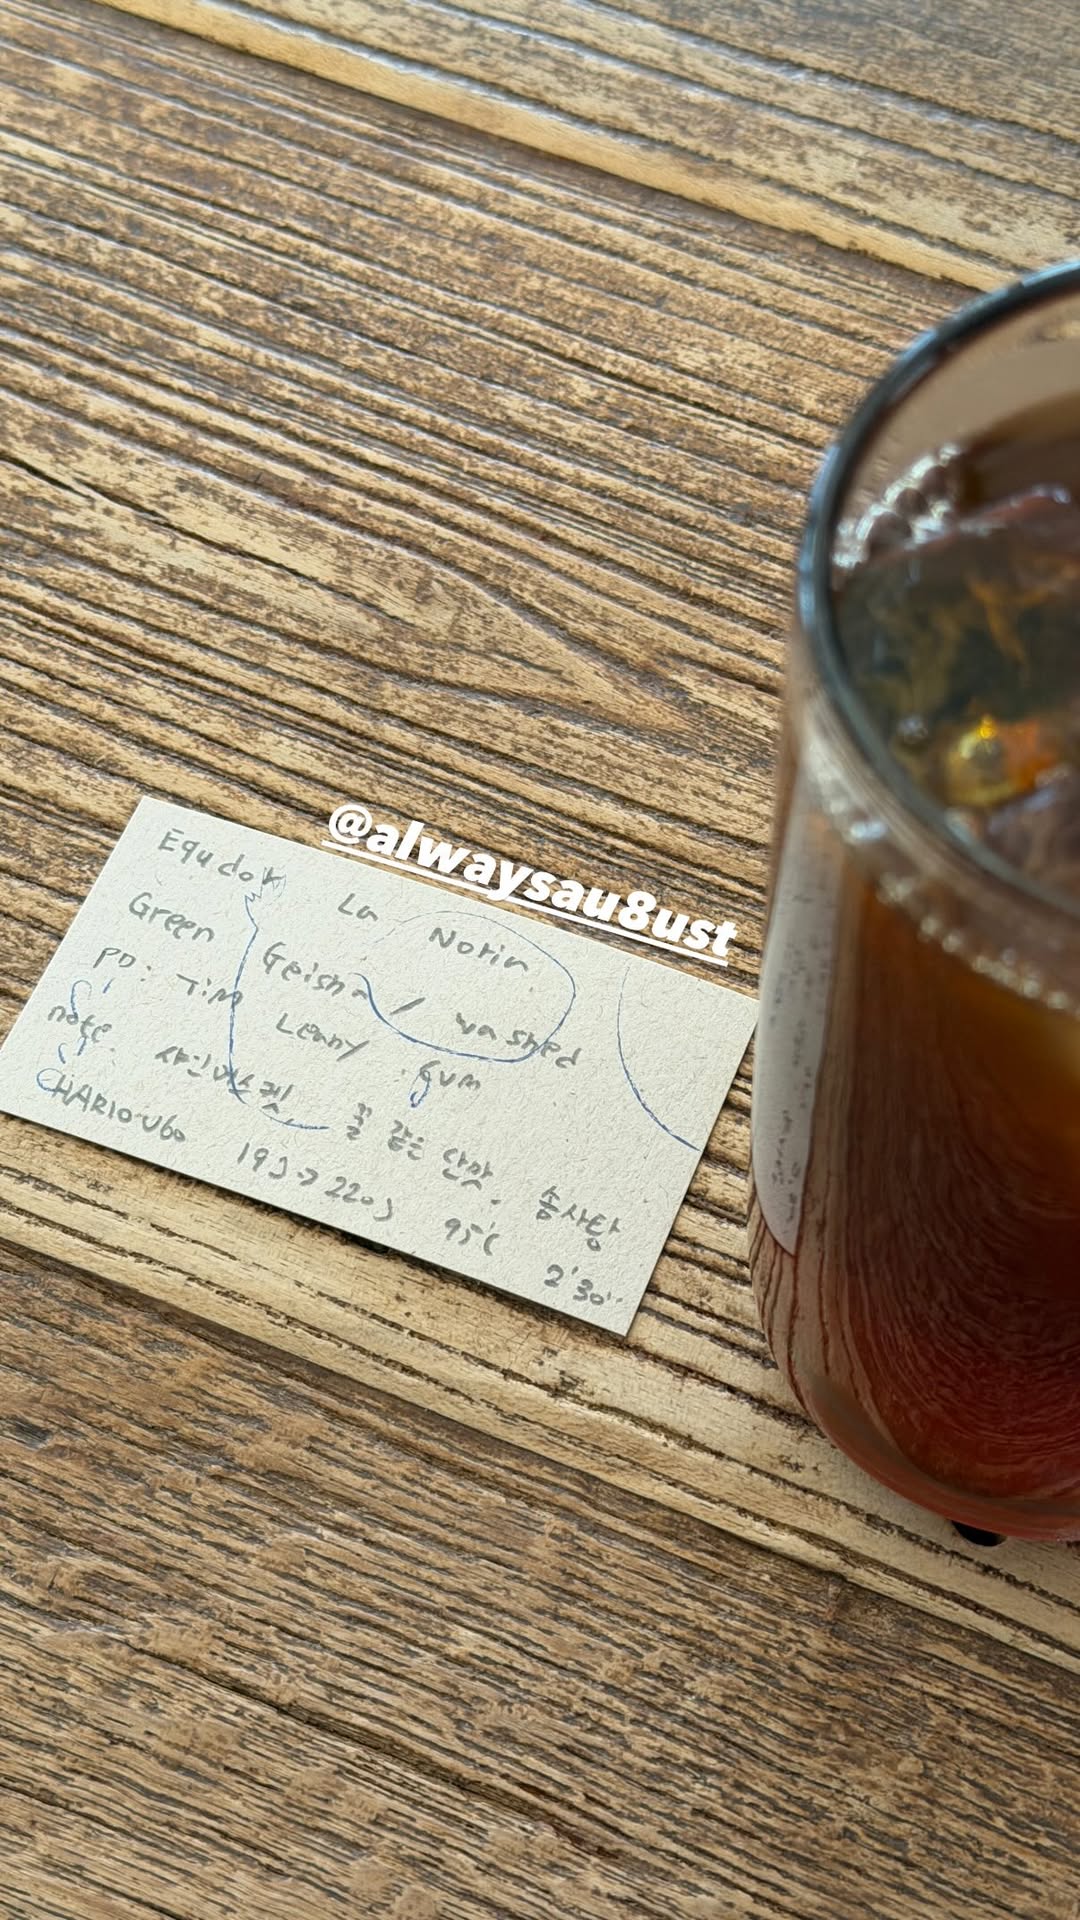 @alwaysau8ust
Equdor La Norin
Green Geisha / washed
PD: Tim Lenny Gum
note 샤인머스켓 꿀 같은 단맛. 솜사탕
HARIO V60 19g → 220g 95℃ 2'30''